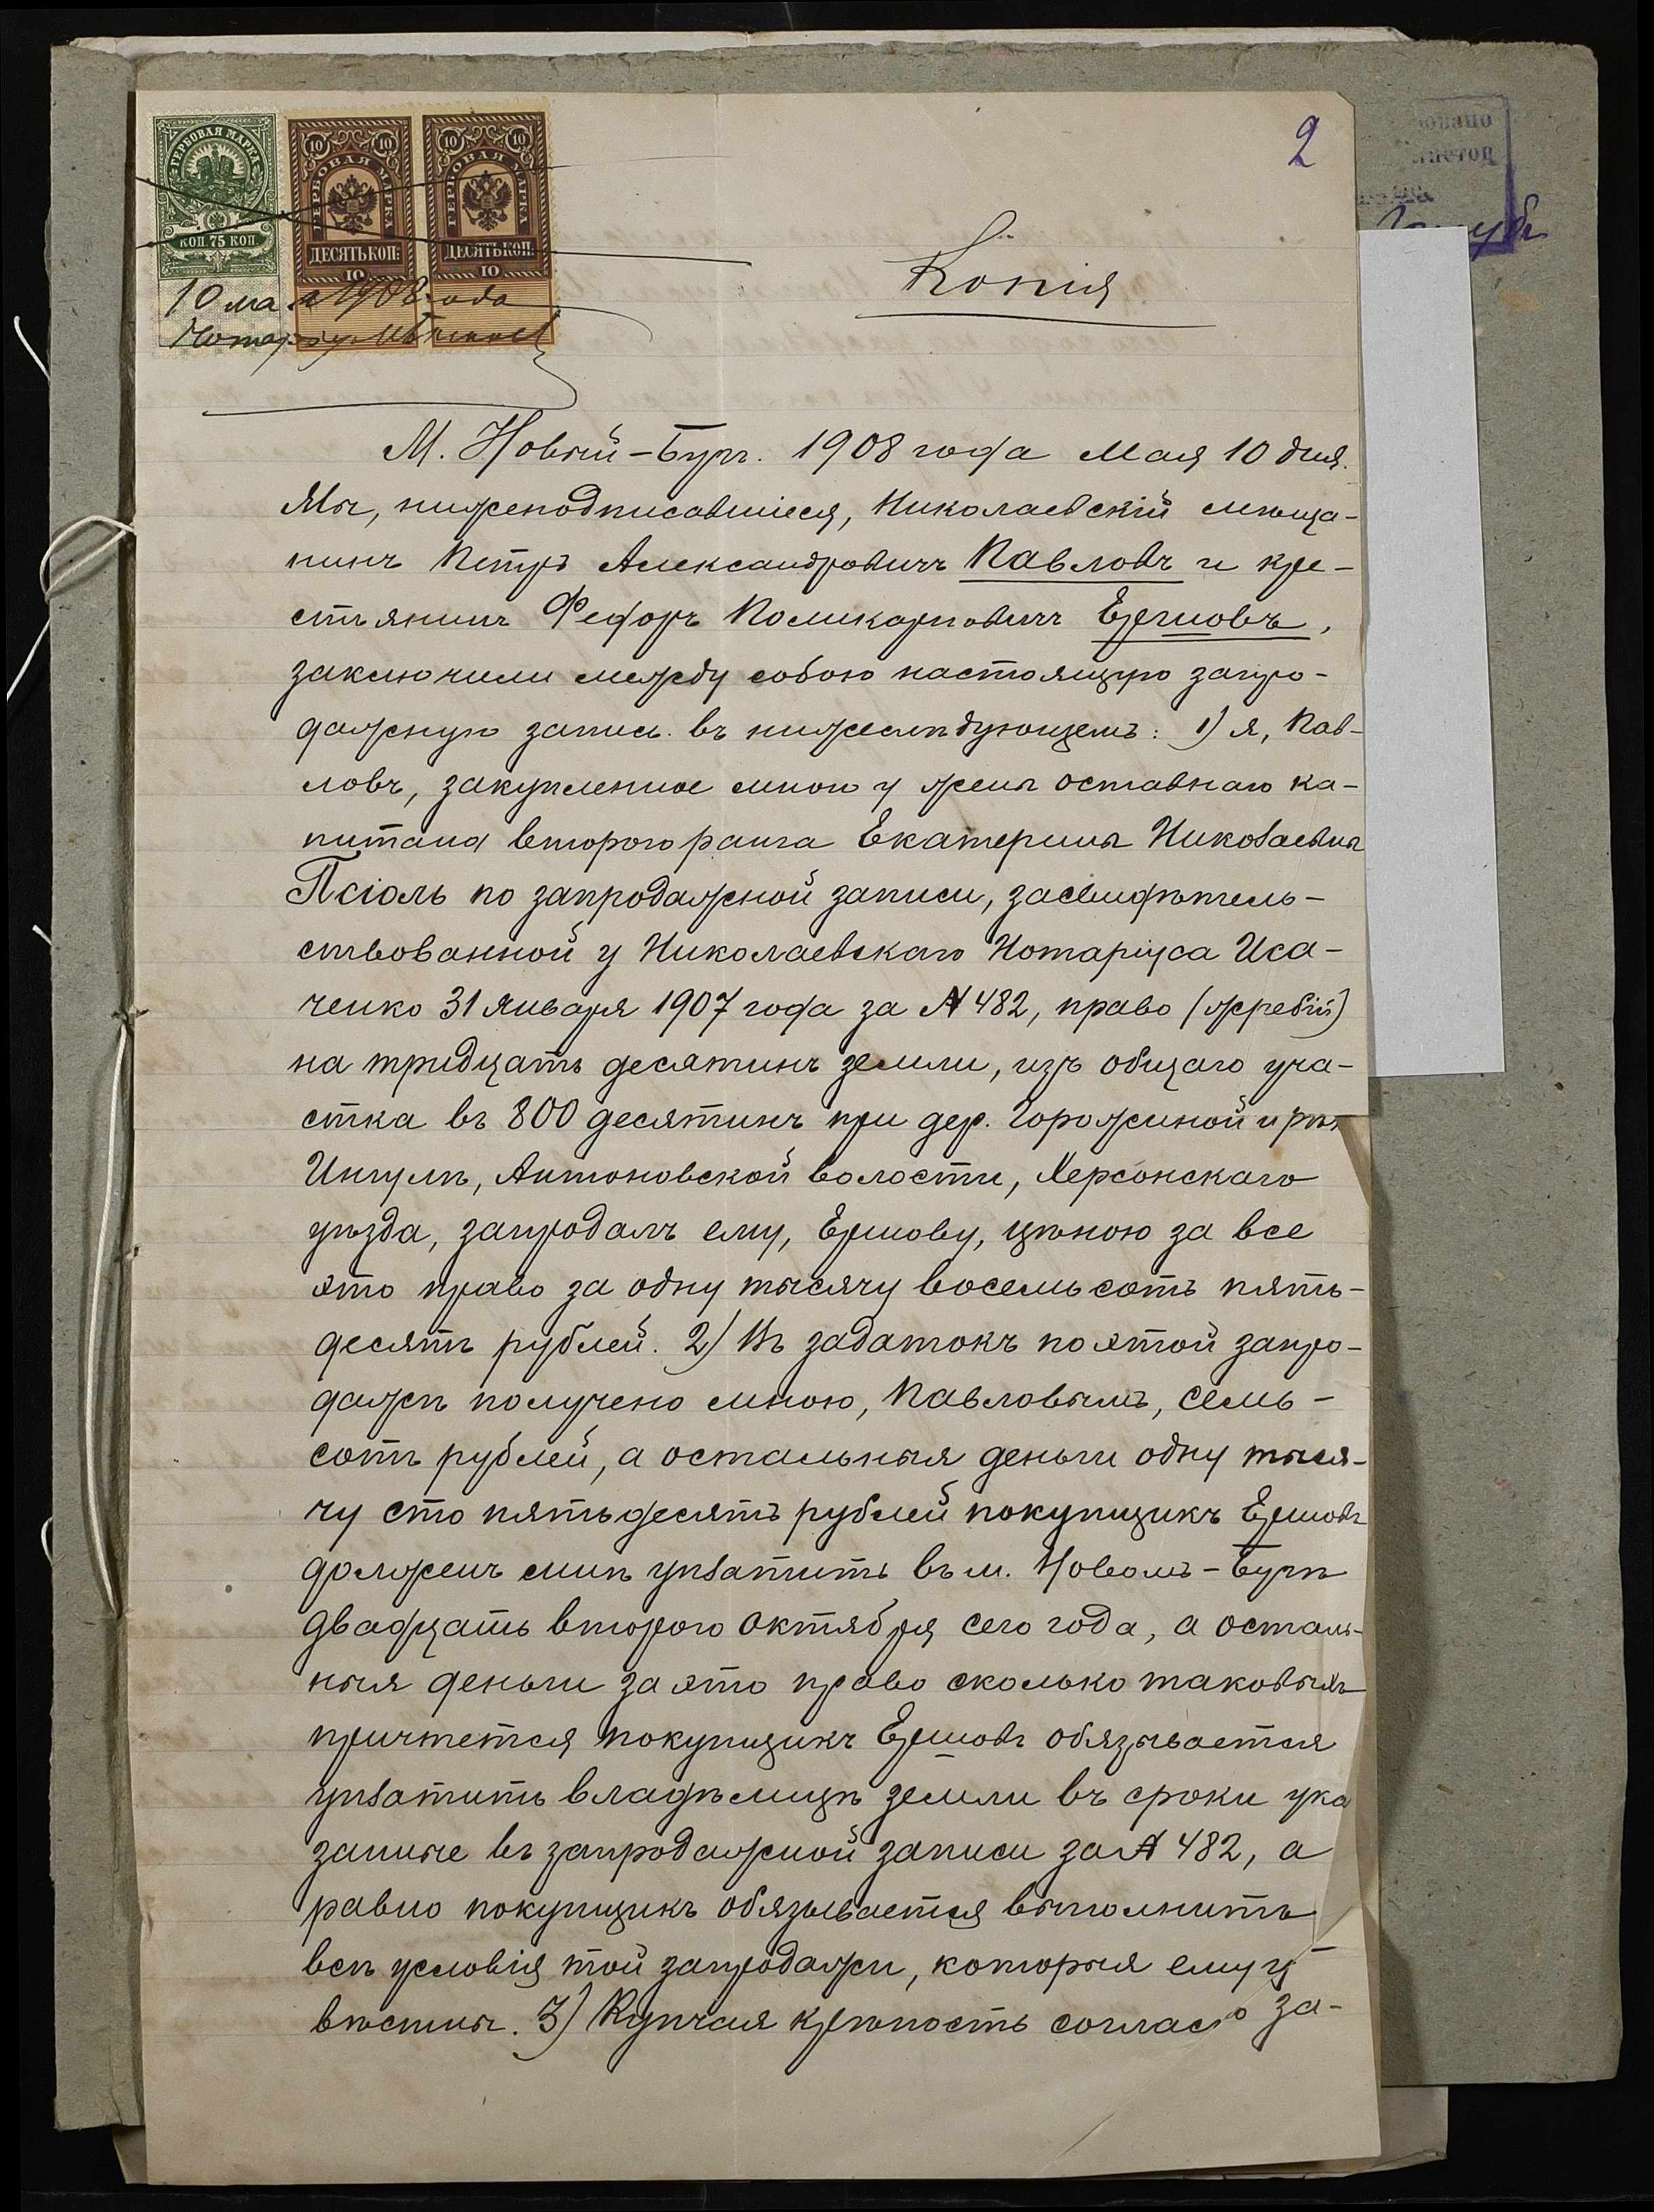 2
ГЕРБОВАЯ МАРКА
КОП. 75 КОП.
10 10
ГЕРБОВАЯ МАРКА
ДЕСЯТЬ КОП.
10
10 10
ГЕРБОВАЯ МАРКА
ДЕСЯТЬ КОП.
10
10 мая 1908 года
Копія
М. Новый-Бугъ. 1908 года Мая 10 дня.
Мы, нижеподписавшіеся, Николаевскій мѣща-
нинъ Петръ Александровичъ Павловъ и кре-
стьянинъ Федоръ Поликарповичъ Ершовъ,
заключили между собою настоящую запро-
дажную запись въ нижеслѣдующемъ: 1) я, Пав-
ловъ, закупленное мною у жены отставнаго ка-
питана второго ранга Екатерины Николаевны
Псіолъ по запродажной записи, засвидѣтель-
ствованной у Николаевскаго Нотаріуса Иса-
ченко 31 Января 1907 года за № 482, право (жребій)
на тридцать десятинъ земли, изъ общаго уча-
стка въ 800 десятинъ при дер. Горожиной и рѣкѣ
Ингулѣ, Антоновской волости, Херсонскаго
уѣзда, запродалъ ему, Ершову, цѣною за все
это право за одну тысячу восемьсотъ пять-
десятъ рублей. 2) Въ задатокъ по этой запро-
дажѣ получено мною, Павловымъ, семь-
сотъ рублей, а остальныя деньги одну тыся-
чу сто пятьдесятъ рублей покупщикъ Ершовъ
долженъ мнѣ уплатить въ м. Новомъ-Бугѣ
двадцать второго Октября сего года, а осталь-
ныя деньги за это право сколько таковыхъ
причтется покупщикъ Ершовъ обязывается
уплатить владѣлицѣ земли въ сроки ука
занные въ запродажной записи за № 482, а
равно покупщикъ обязывается выполнить
всѣ условія той запродажи, которыя ему из
вѣстны. 3) Купчая крѣпость согласно за-